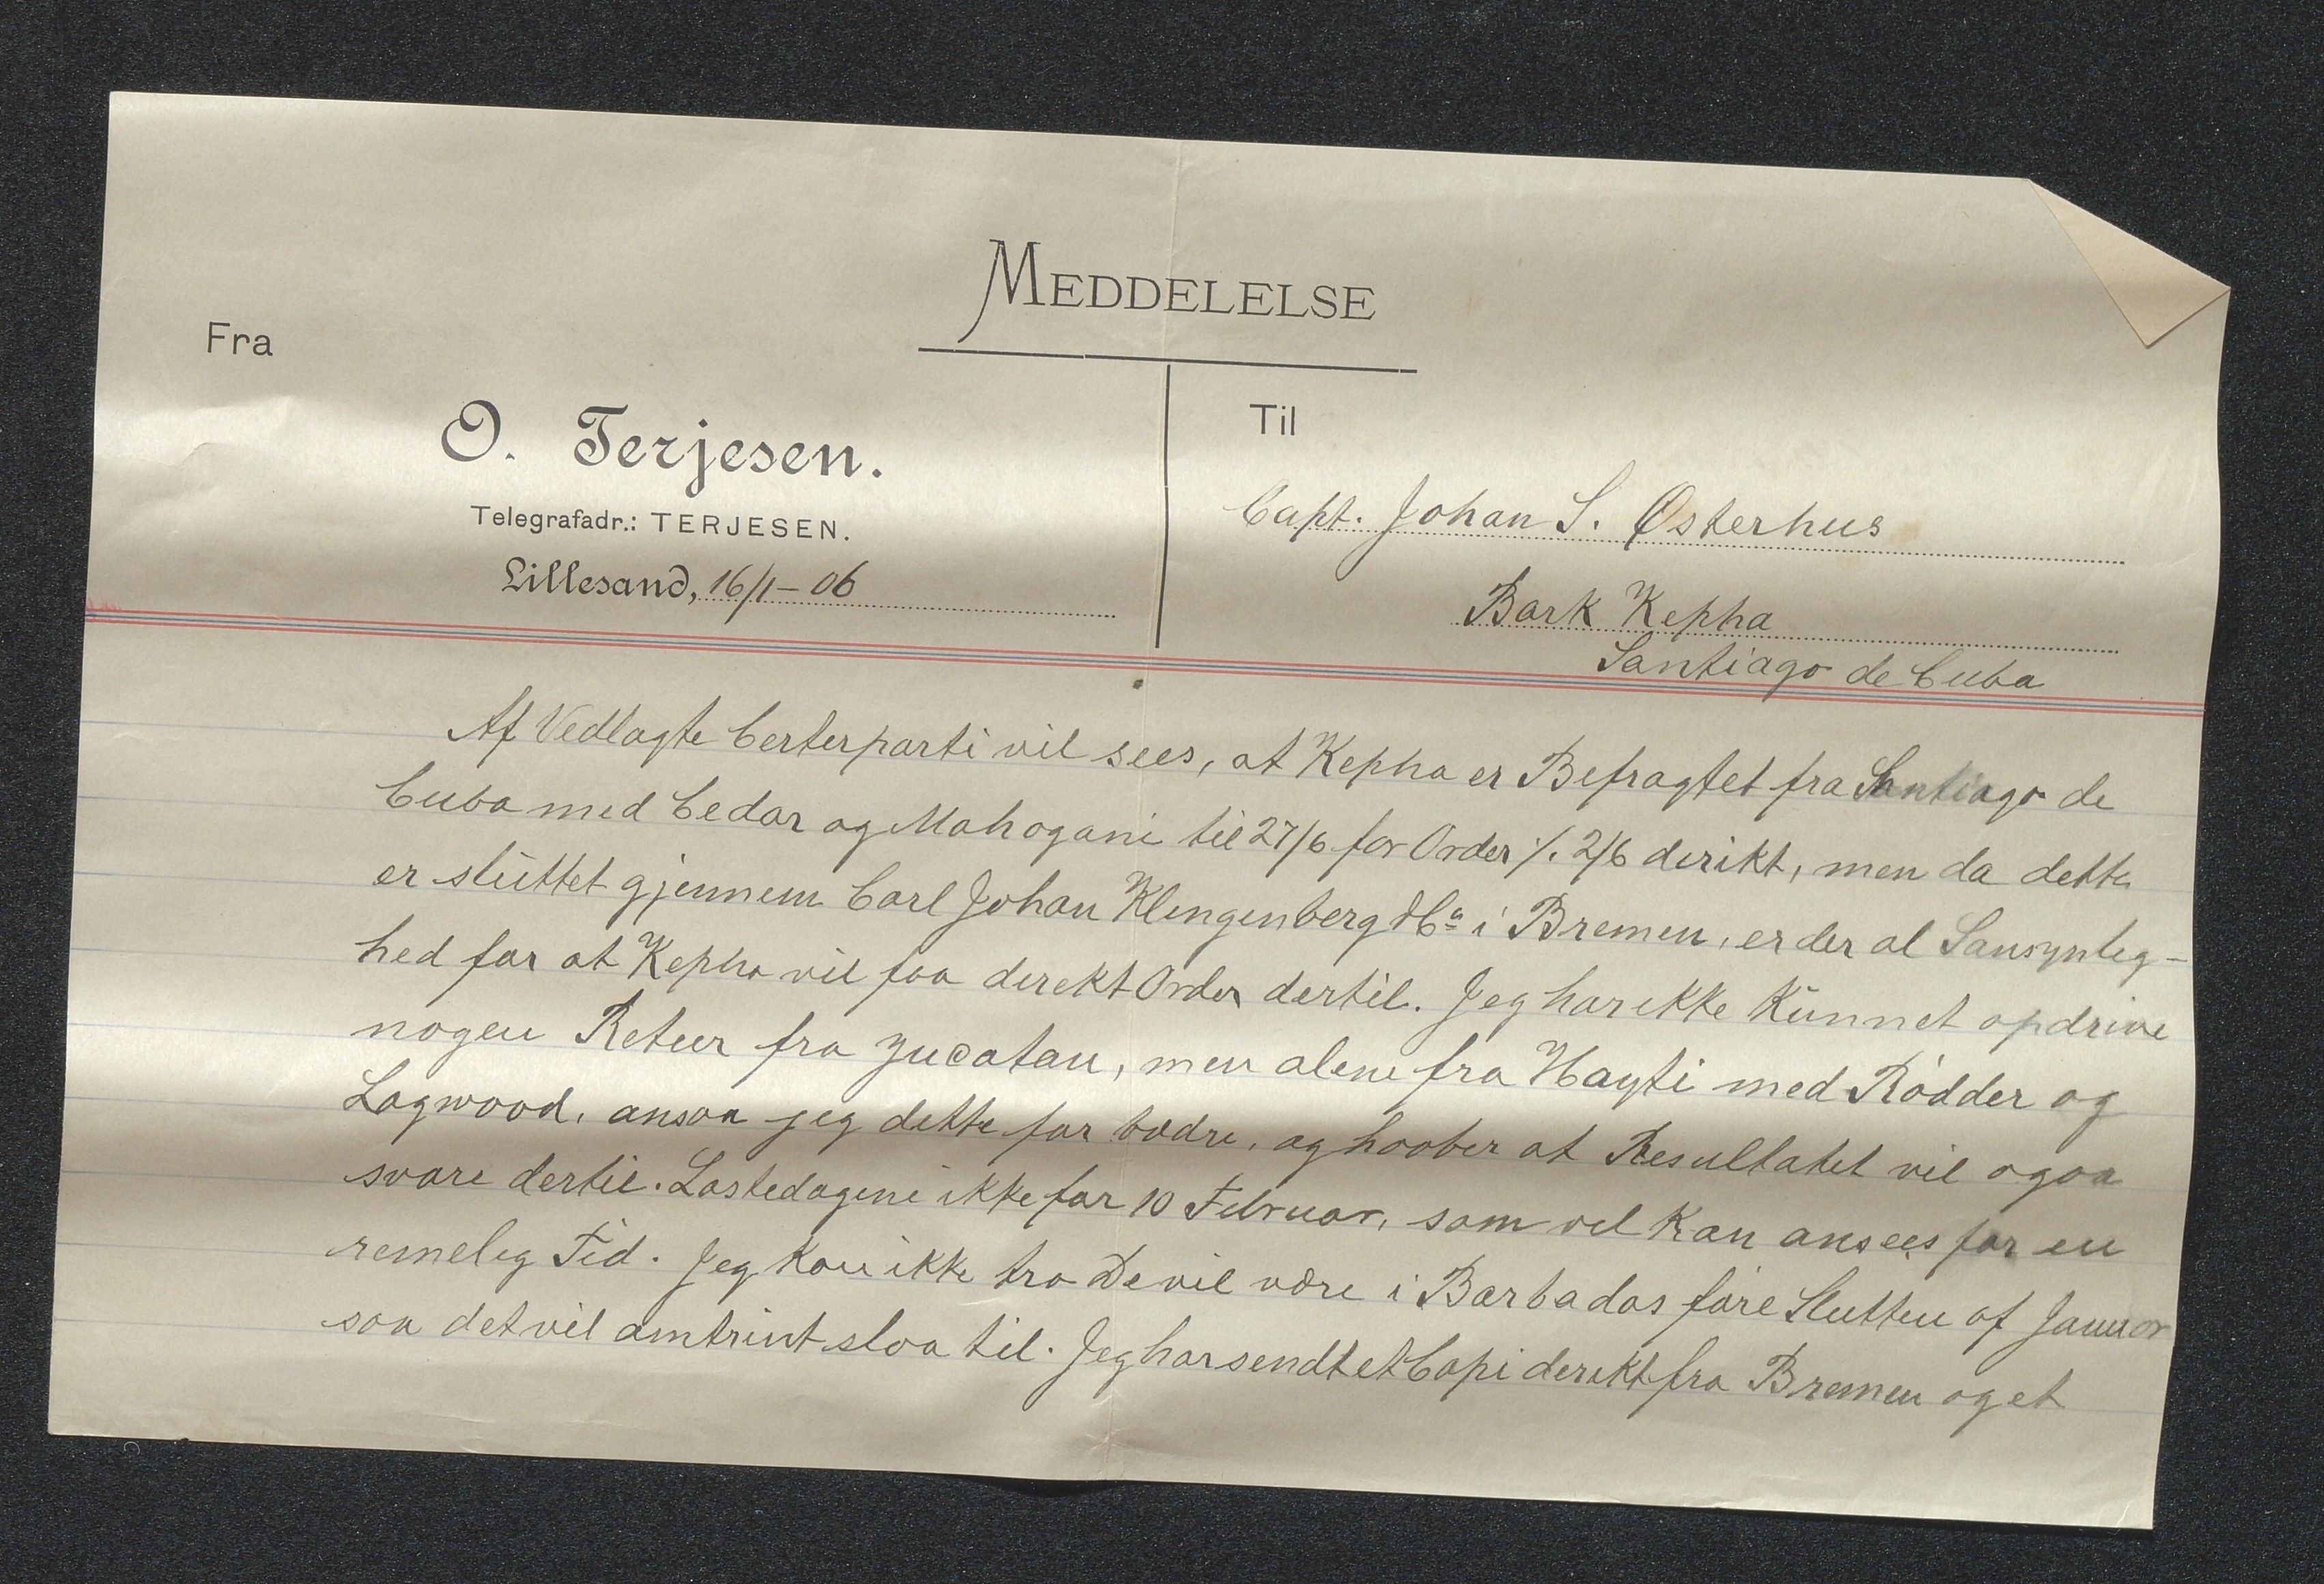 MEDDELELSE
Fra
O. Terjesen.
Telegrafadr.: TERJESEN.
Lillesand, 16/1-06
Til
Capt. Johan S. Østerhus
Bark Kepha
Santiago de Cuba
Af Vedlagte Certerparti vil sees, at Kepha er Befragtet fra Santiago de
Cuba med Cedar og Mahogani til 27/6 for Order ./. 2/6 derikt, men da dette
er sluttet gjennem Carl Johan Klingenberg & Co i Bremen, er der al Sansynlig-
hed for at Kepha vil faa direkt Order dertil. Jeg har ikke kunnet opdrive
nogen Retur fra Yucatan, men alene fra Hayti med Rødder og
Logwood, ansaa jeg dette for bedre, og haaber at Resultatet vil ogsaa
svare dertil. Lastedagene ikke før 10 Februar, som vel kan ansees for en
remelig Tid. Jeg kan ikke tro De vil være i Barbados føre Slutten af Januar
saa det vil omtrint slaa til. Jeg har sendt et Copi derikt fra Bremen og et